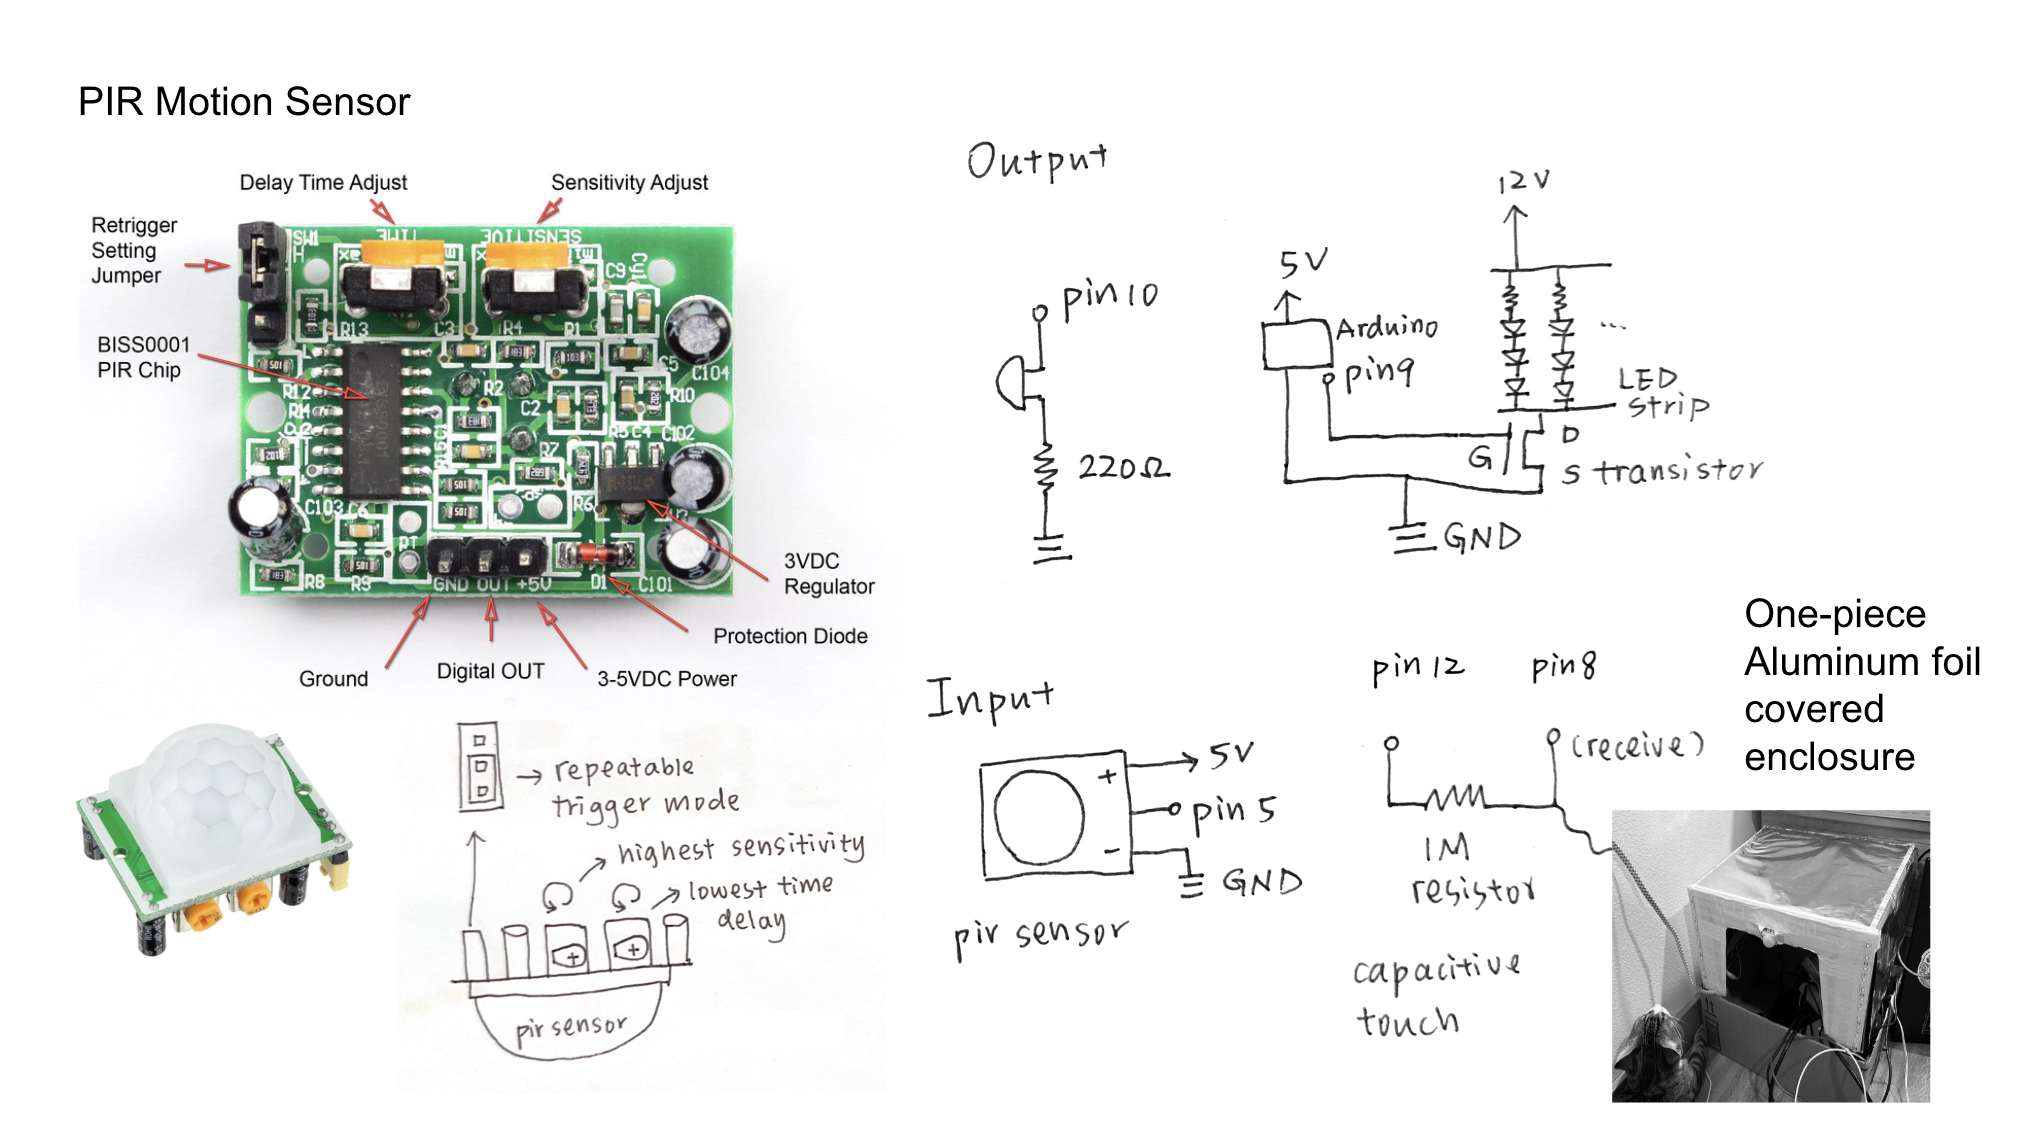 PIR Motion Sensor
Delay Time Adjust
Sensitivity Adjust
Retrigger
Setting
Jumper
BISS0001
PIR Chip
SW1
H
TIME
SENSITIVE
C9
Cy1
R13
C3
R4
R1
C5
C104
R12
R14
Cy2
R2
C2
R10
R15
C1
R5
C4
C102
R7
R6
C103
C6
RT
R8
R9
D1
C101
GND OUT +5V
3VDC
Regulator
Protection Diode
Ground
Digital OUT
3-5VDC Power
→ repeatable
trigger mode
highest sensitivity
lowest time
delay
pir sensor
Output
pin 10
220Ω
5V
Arduino
pin9
12V
...
LED
Strip
G
D
S transistor
GND
Input
+
5V
pin 5
-
GND
pir sensor
pin 12
pin 8
(receive)
1M
resistor
capacitive
touch
One-piece
Aluminum foil
covered
enclosure